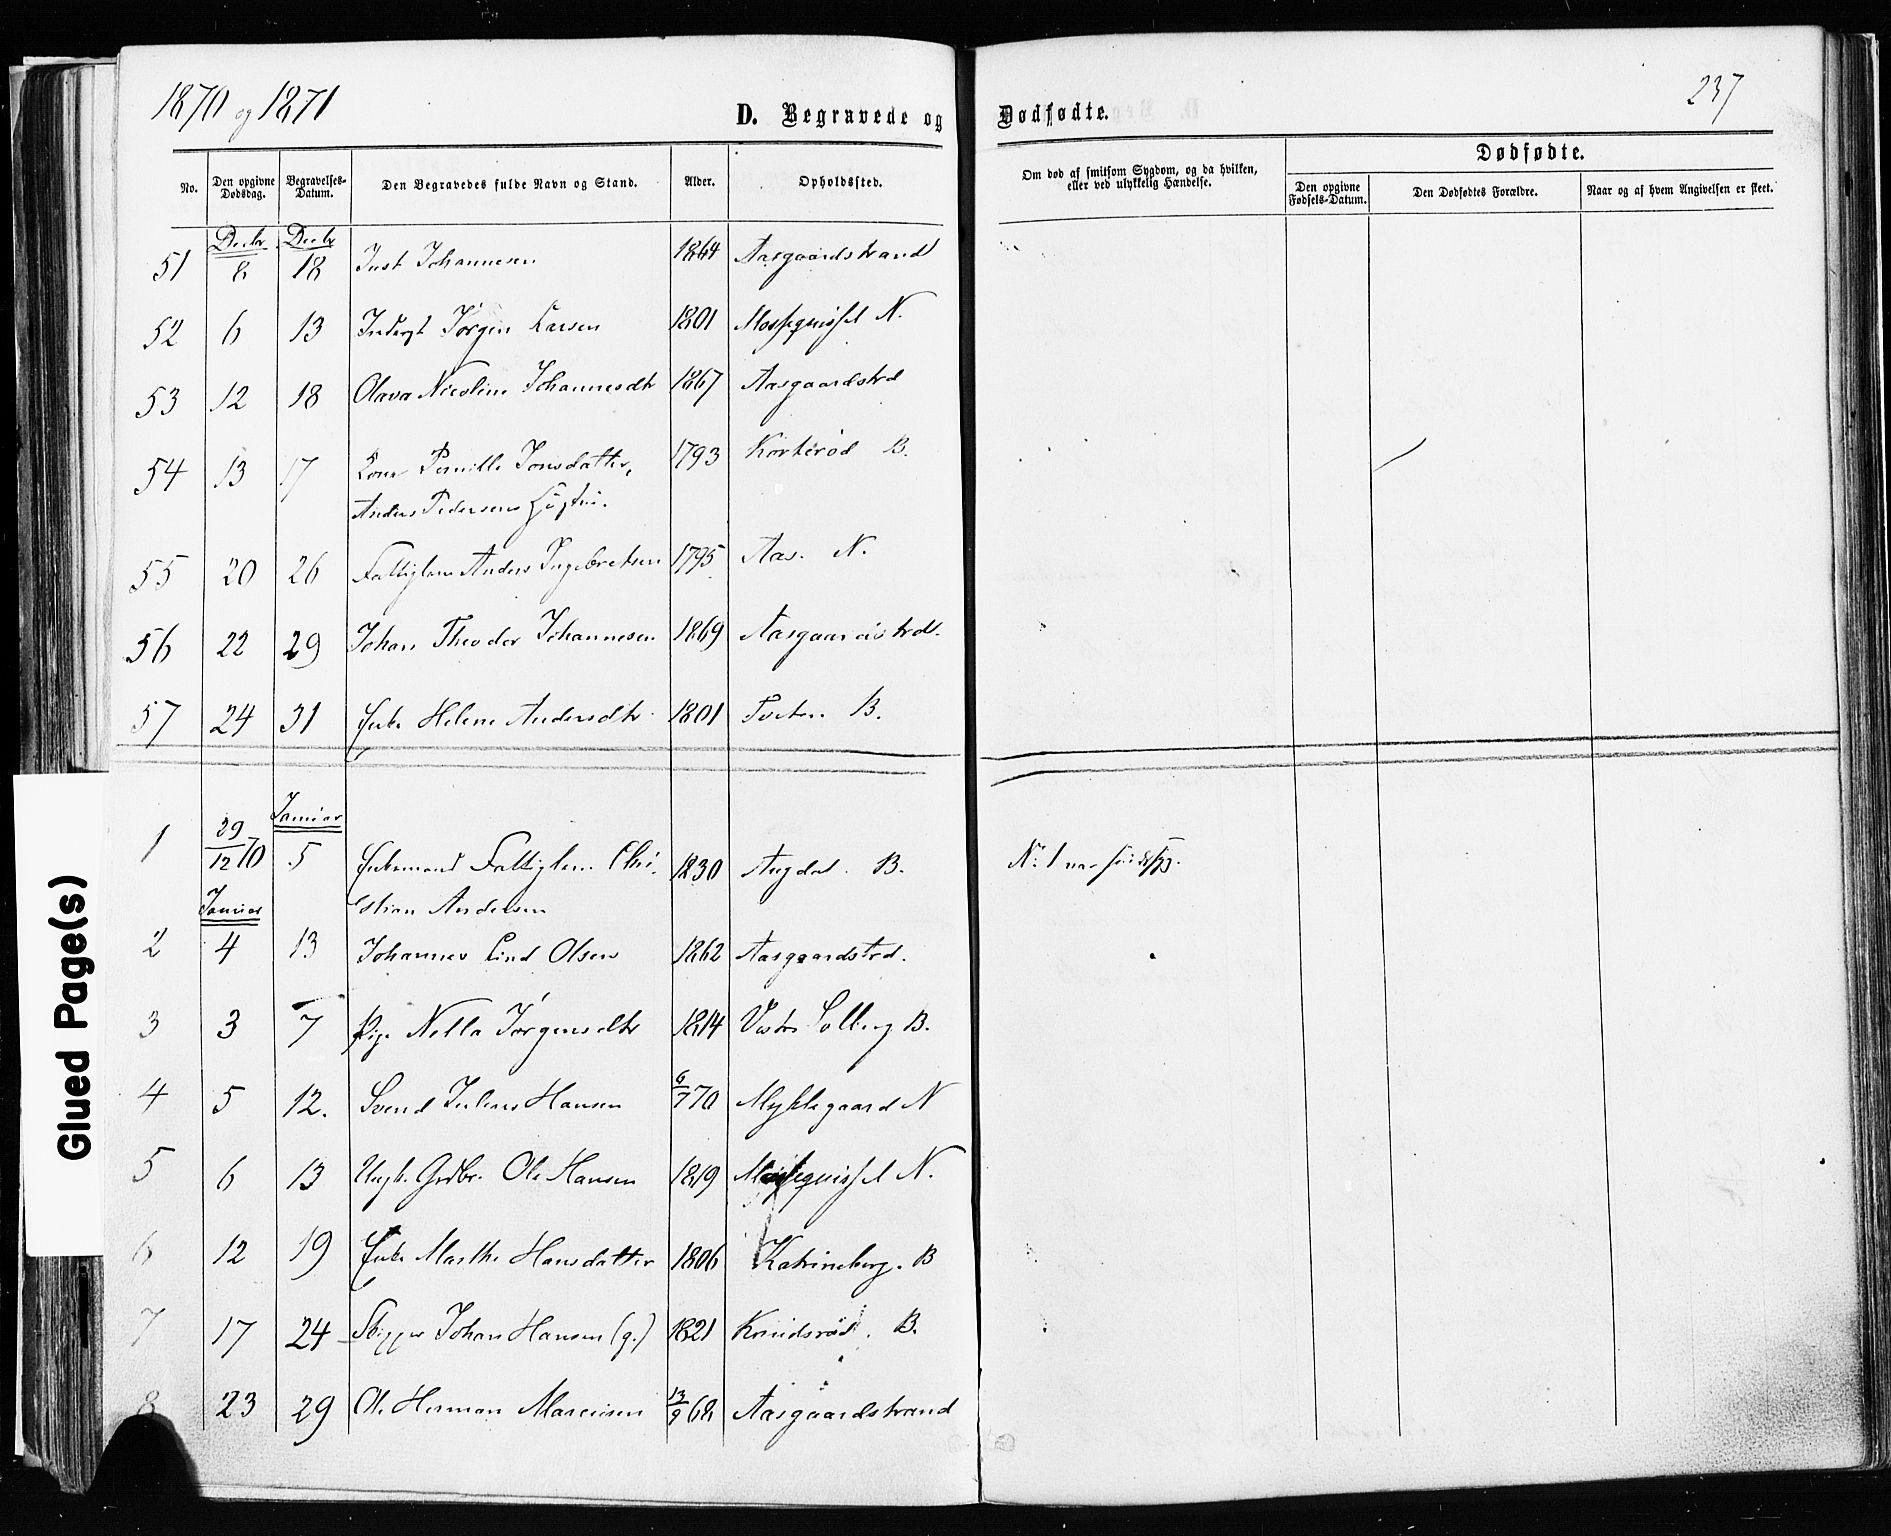 1870 og 1871
237
D. Begravede og Dødfødte.
No. Den opgivne Dødsdag. Begravelses-Datum. Den Begravedes fulde Navn og Stand. Alder. Opholdssted. Om død af smitsom Sygdom, og da hvilken, eller ved ulykkelig Hændelse. Dødfødte. Den opgivne Fødsels-Datum. Den Dødfødtes Forældre. Naar og af hvem Angivelsen er skeet.
Decbr Decbr
51 8 18 Just Johannesen 1864 Aasgaardstrand
52 6 13 Inderst Jørgen Larsen 1801 N.
53 12 18 Olava Nicoline Johannesdtr 1867 Aasgaardstrd
54 13 17 Pernille Jonsdatter, 1793 Korterød B.
Anders Pedersens
55 20 26 Fattiglem Anders Ingebretsen 1795 Aas. N.
56 22 29 Johan Theodor Johannesen 1869 Aasgaardstrd.
57 24 31 Enke Helene Andersdtr 1801 Tveten B.
Januar
1 29/12 70 5 Enkemand Fattiglem Chri- 1830 Augdal. B. No. 1 var
stian Andersen
Januar
2 4 13 Johannes Lind Olsen 1862 Aasgaardstrd.
3 3 7 Pige Nella Jørgensdtr 1814 Solberg B.
4 5 12. Svend Julius Hansen 6/7 70 Myklegaard N
5 6 13 Ungk. Grdbr. Ole Hansen 1819 N.
6 12 19 Enke Marthe Hansdatter 1806 Katrineborg. B
7 17 24 Skipper Johan Hansen (g.) 1821 Knudsrød. B.
8 23 29 Ole Herman Marcusen 13/9 68 Aasgaardstrand
Glued Page(s)